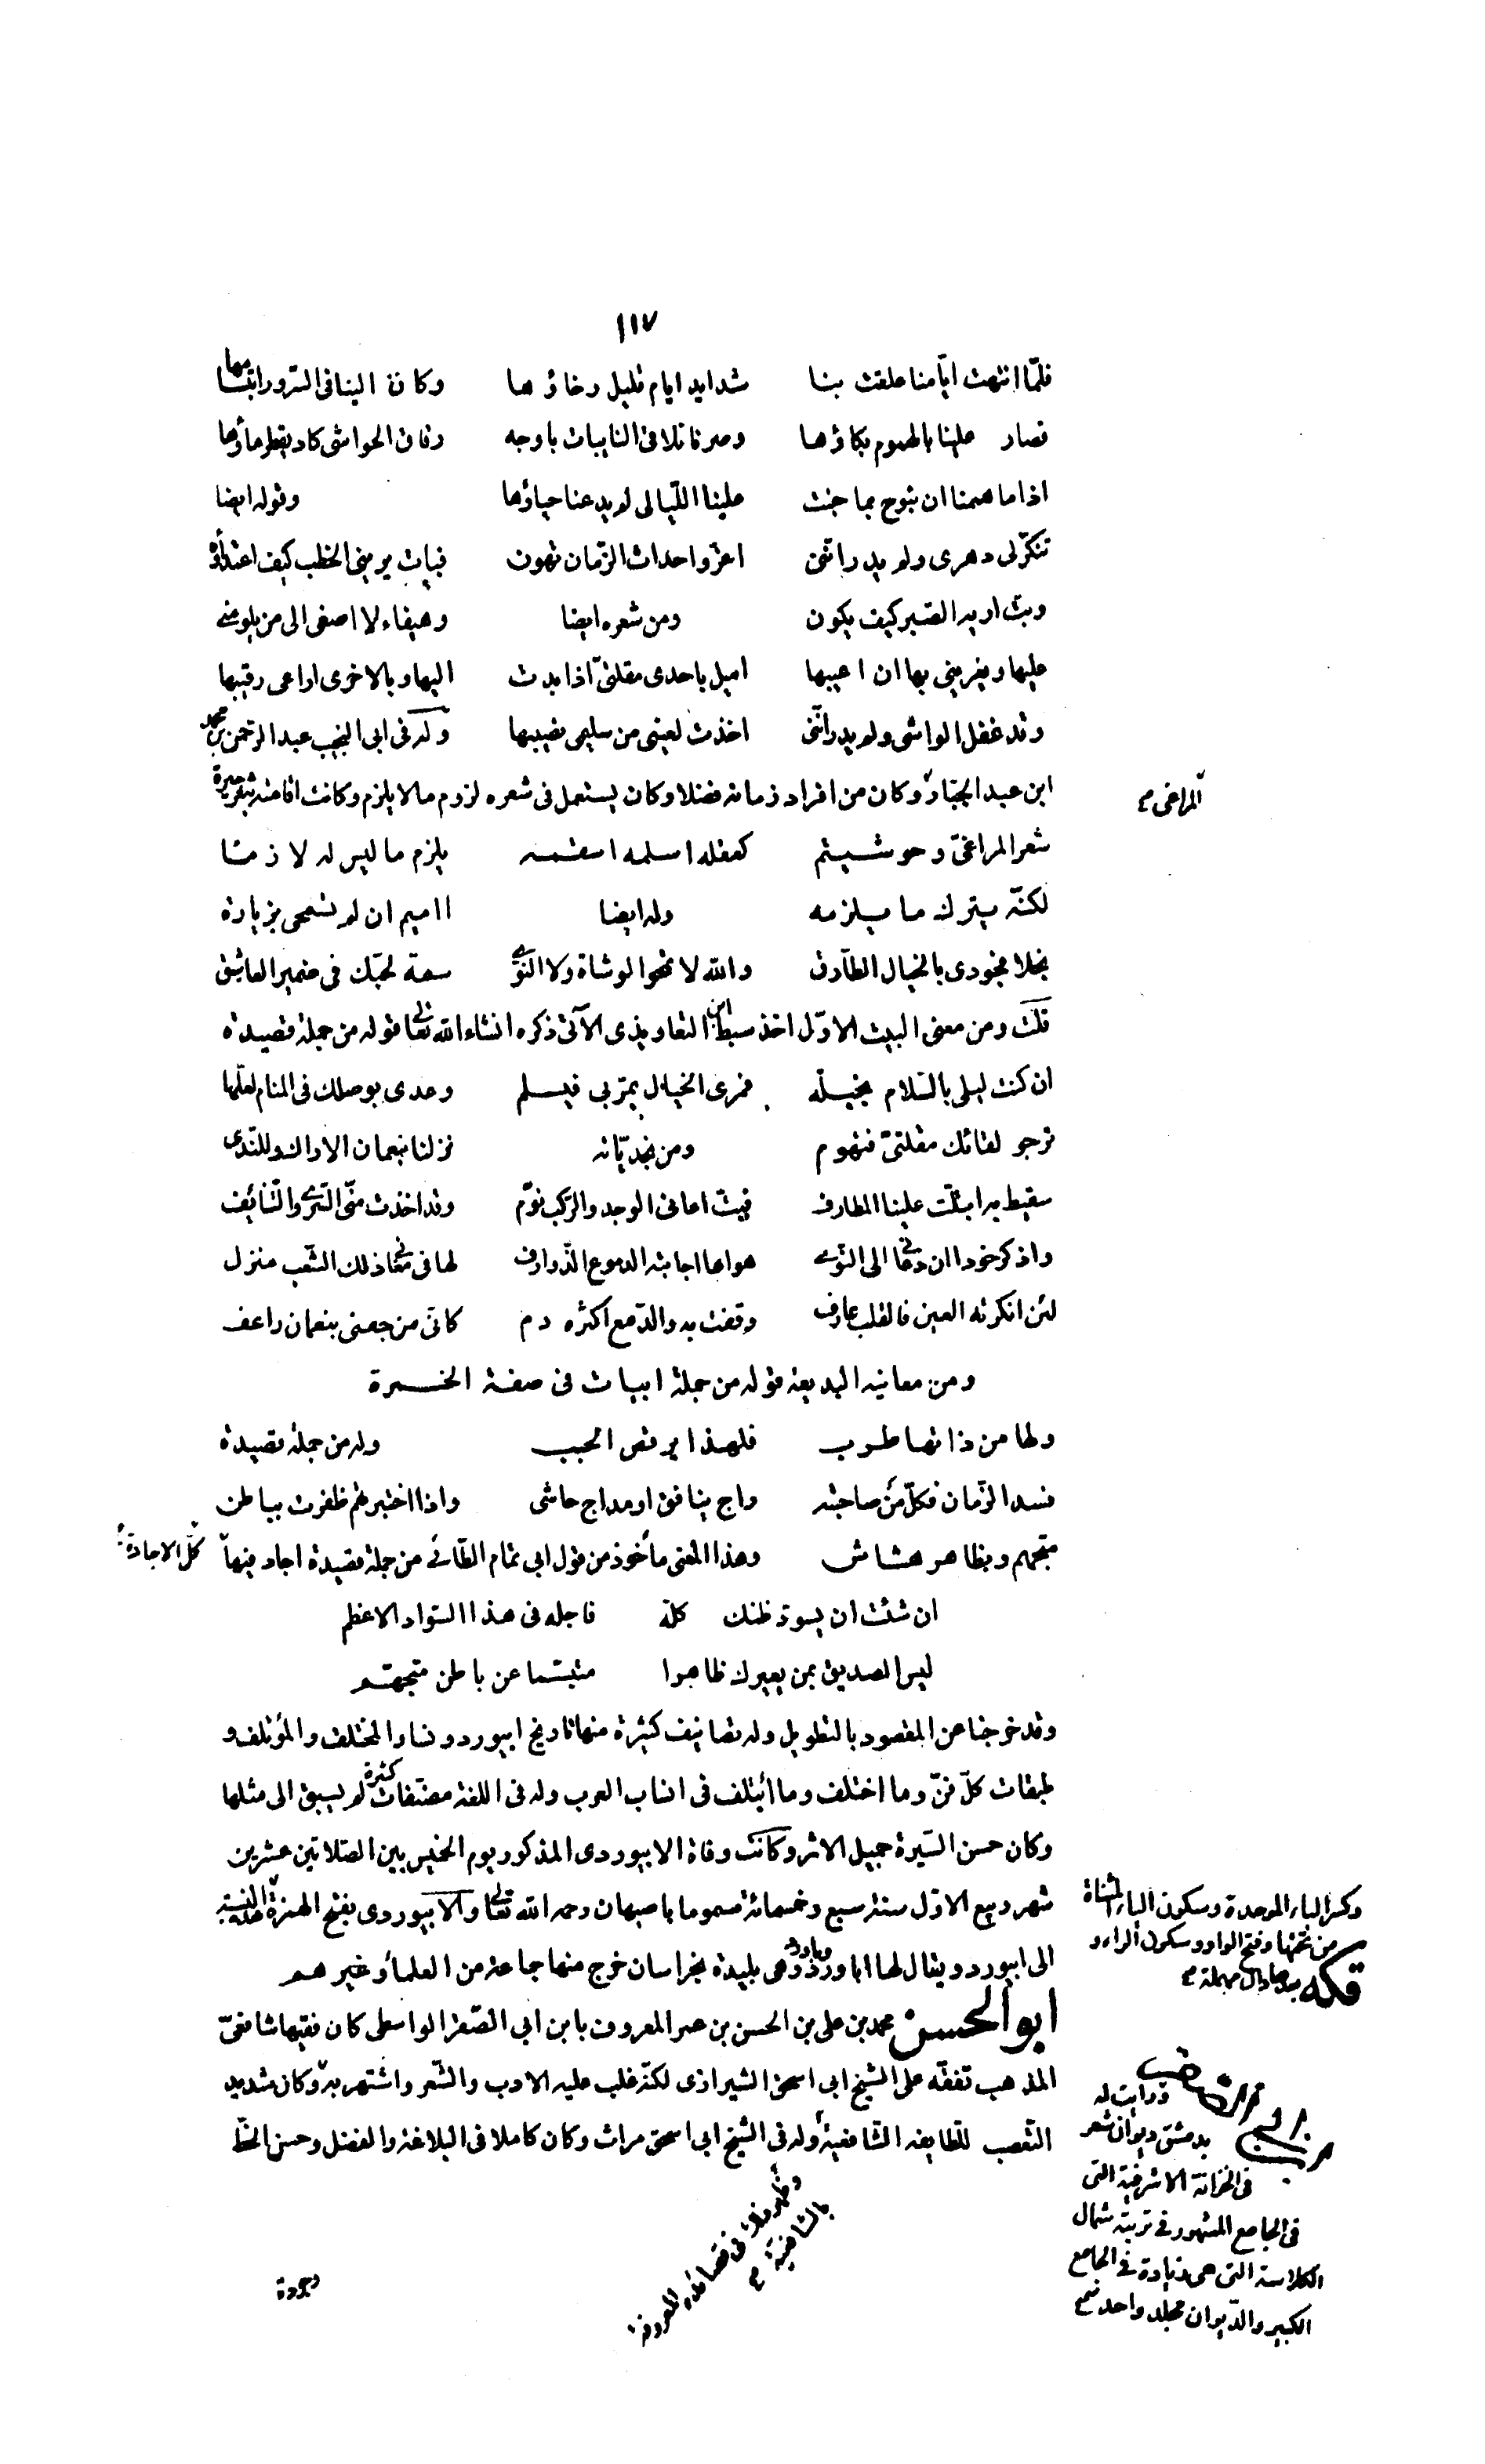 ١١٧
فلمّا انتهت ايّامنا علقت بنا شدايد ايام قليل رخاؤها وكان الينا فى السّرور ابتسامها
فصار علينا بالهموم بكاؤها وصرنا نلاقى النايبات باوجه رقاق الحواشى كاد يقطر ماؤها
اذا ما هممنا ان نبوح بما جنت علينا اللّيالى لم يدعنا حياؤها وقوله ايضا
تنكّر لى دهرى ولم يدر انّنى اعزّ واحداث الزّمان تهون فبات يرينى الخطب كيف اعتداؤه
وبتّ اريه الصّبر كيف يكون ومن شعره ايضا وهيفاء لا اصغى الى من يلومنى
عليها ويغرينى بها ان اعيبها اميل باحدى مقلتىّ اذا بدت اليها وبالاخرى اراعى رقيبها
وقد غفل الواشى ولم يدر انّنى اخذت لعينى من سليمى نصيبها وله فى ابى النجيب عبد الرّحمن بن محمد
ابن عبد الجبّار وكان من افراد زمانه فضلا وكان يستعمل فى شعره لزوم ما لا يلزم وكانت اقامته بثغر جنزة
المراغى صح
شعر المراغىّ وحوشيتم كعقله اسلمه اسقمه يلزم ما ليس له لازما
لكنّه يترك ما يلزمه وله ايضا ااميم ان لم تسمحى بزيارة
بخلا فجودى بالخيال الطّارق والله لا تمحوا الوشاة ولا النّوى سمة لحبّك فى ضمير العاشق
قلت ومن معنى البيت الاوّل اخذ سبط ابن التعاويذى الآتى ذكره انشاء الله تعالى قوله من جملة قصيدة
ان كنت ليلى بالسّلام بخيلة فمرى الخيال يمرّ بى فيسلم وعدى بوصلك فى المنام لعلّها
ترجو لقائك مقلتىّ فتهوم ومن نجديّاته نزلنا بنعمان الاراك وللنّدى
سقيط به ابتلّت علينا المطارف فبتّ اعانى الوجد والرّكب نوّم وقد اخذت منّى السّرى والتّنائف
واذكر خودا ان دعانى الى النّوى هواها اجابته الدموع الذّوارف لها فى مغانى ذلك الشّعب منزل
لئن انكرته العين فالقلب عارف وقفت به والدّمع اكثره دم كانّى من جفنى بنعمان راعف
ومن معانيه البديعة قوله من جملة ابيات فى صفة الخمرة
ولها من ذاتها طرب فلهذا يرقص الحبب وله من جملة قصيدة
فسد الزّمان فكلّ من صاحبته راج ينافق او مداج حاشى واذا اختبرتهم ظفرت بباطن
متجهم وبظاهر هشاش وهذا المعنى مأخوذ من قول ابى تمّام الطّائى من جملة قصيدة اجاد فيها كلّ الاجادة
ان شئت ان يسودّ ظنك كلّه فاجله فى هذا السّواد الاعظم
ليس الصديق بمن يعيرك ظاهرا متبسّما عن باطن متجهّم
وقد خرجنا عن المقصود بالتطويل وله تصانيف كثيرة منها تاريخ ابيورد ونسا والمختلف والمؤتلف و
طبقات كلّ فنّ وما اختلف وما ائتلف فى انساب العرب وله فى اللغة مصنّفات كثيرة لم يسبق الى مثلها
وكان حسن السّيرة جميل الاثر وكانت وفاة الابيوردى المذكور يوم الخميس بين الصّلاتين عشرين
شهر ربيع الاوّل سنة سبع وخمسمائة مسموما باصبهان رحمه الله تعالى والابيوردى بفتح الهمزة هذه النسبة
وكسر الباء الموحدة وسكون الياء المثناة
من تحتها وفتح الواو وسكون الراء و
بعدها دال مهملة صح
الى ابيورد ويقال لها ابا ورد وباورد وهى بليدة بخراسان خرج منها جماعة من العلماء وغيرهم
ابو الحسن محمد بن على بن الحسن بن عمر المعروف بابن ابى الصّقر الواسطى كان فقيها شافعىّ
المذهب تفقّه على الشيخ ابى اسحق الشيرازى لكنّه غلب عليه الادب والشّعر واشتهر به وكان شديد
التعصب للطايفه الشّافعية وله فى الشيخ ابى اسحق مراث وكان كاملا فى البلاغة والفضل وحسن الخطّ
ورايت له
بدمشق ديوان شعر
فى الخزانة الاشرفية التى
فى الجامع المشهور فى تربته شمال
الكلاسة التى هى زيادة فى الجامع
الكبير والدّيوان مجلد واحد صح
وظهر ذلك فى قصائده المعروفة
بالشافعية صح
وجودة